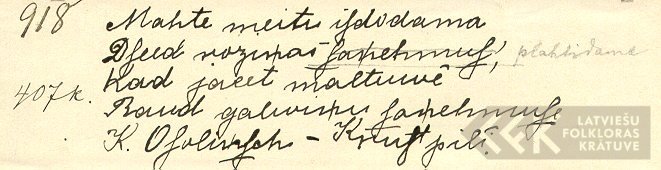 918 Mahte meitu isdodama
Dseed rozinas sanehmuse, plahtidama
Kad jaeet maltuwê
407 k. Raud galwinu sanehmuse
K. Osolinsch - Krustpilî.
LATVIEŠU
FOLKLORAS
KRĀTUVE